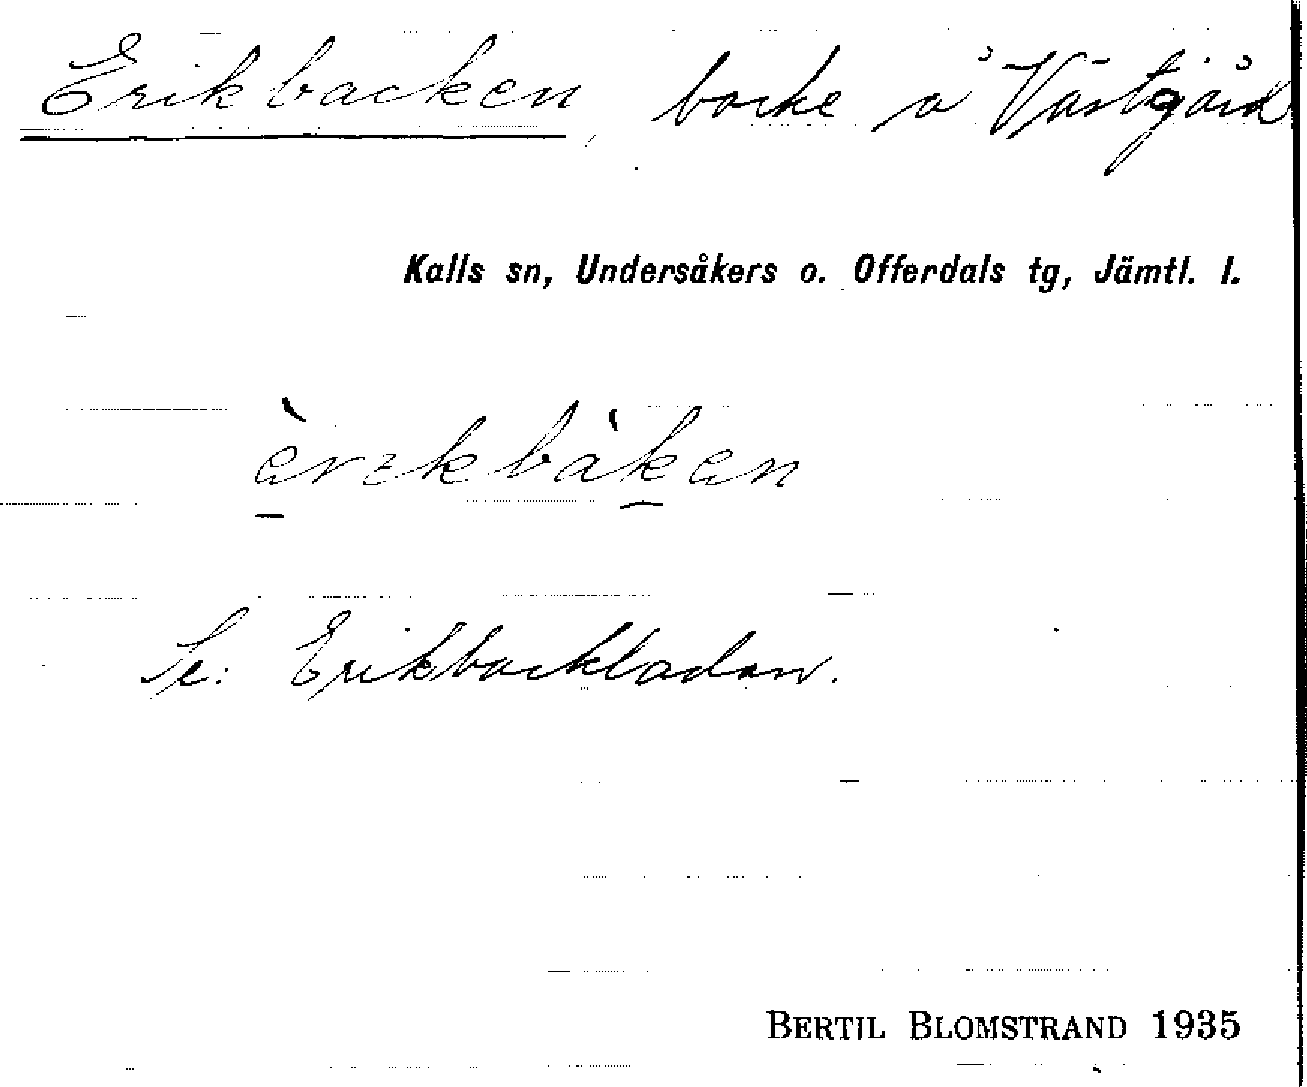 Erikbacken, backe å Västgård
Kalls sn, Undersåkers o. Offerdals tg, Jämtl. l.
èrɩkbàken
Se: Erikbackladan.
BERTIL BLOMSTRAND 1935